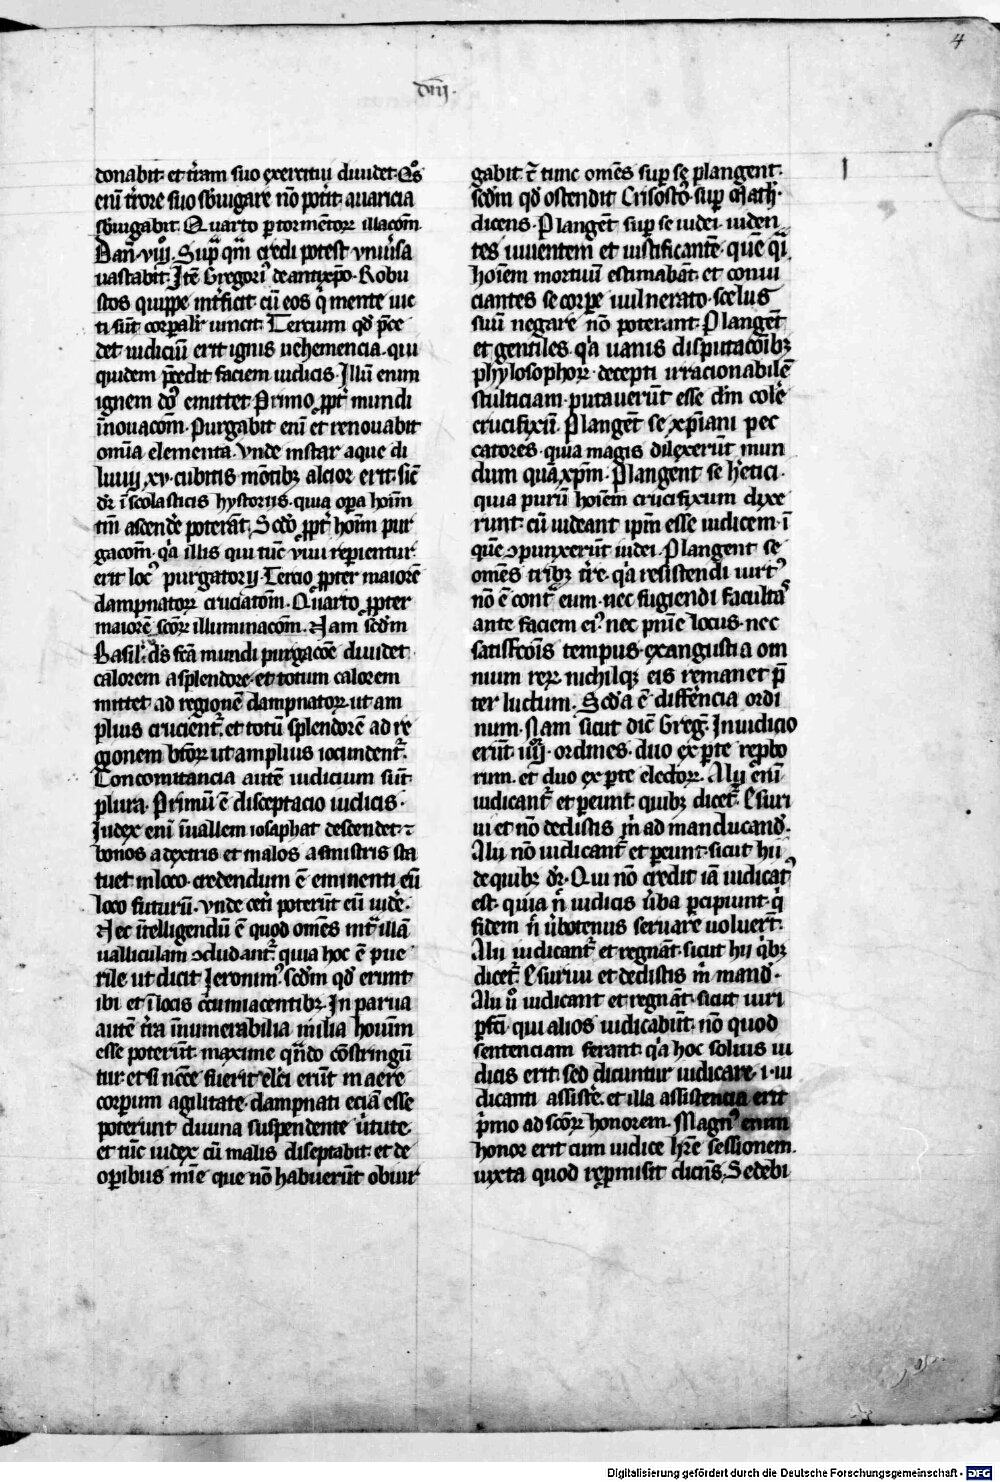 4
dm̄j.
donabit· et t̄ram suo exercitui diuidet· Qͦs
enī t̄rore suo sb̄iugare nō pot̄it· auaricia
sb̄iugabit· Quarto p̱ tormētor̄ illacōm̄·
Dan̄· viijͦ· Supra qm̄ credi potest vniūsa
uastabit· Itē Gregoriꝰ de antixp̄o· Robu
stos quippe int̄ficit cū eos q̄ mente uic
ti sūt corpalit̄ uincit· Tercium qd̄ p̄ce
det iudiciū erit ignis uehemencia· qui
quidem p̄cedit faciem iudicis· Illū enim
ignem dn̄s emittet Primo ꝓpt̄ mundi
īnouacōm̄· Purgabit enī et renouabit
omīa elementa· Vnde instar aque di
luuij xv· cubitis mōtibꝫ alcior erit· sic̄
dr̄ ī scolasticis hystoriis· quia oꝑa hoīm
tm̄ ascende̊ poterāt· Scd̄o ꝓpt̄ hoīm pur
gacōm̄· qͥa illis qui tūc viui reperientur·
erit locꝰ purgatorij· Tercio ꝓpter maiorē
dampnatoꝝ cruciatōm̄· Quarto ꝓpter
maiorē scōꝝ illuminacōm̄· Nam scd̄m
Basiliꝰ· dn̄s fc̄a mundi purgacōē diuidet
calorem a splendore· et totum calorem
mittet ad regionē dampnatoꝝ· ut am
plius crucient̄· et totū splendorē ad re
gionem btōꝝ ut amplius iocundent̄·
Concomitancia autē iudicium sūt
plura· Primū ē disceptacio iudicis·
Iudex enī ī uallem iosaphat descendet· ⁊
bonos a dextris et malos a sinistris sta
tuet in loco· credendum ē eminenti eū
loco futurū· vnde cet̄i poterūt eū uide̊·
Nec ītelligendū ē quod omēs int̄ illā
ualliculam ɔcludant̄· quia hoc ē pue
rile ut dicit Ieronimꝰ· scd̄m qd̄ erunt
ibi et ī locis cc̄umiacentibꝫ· In parua
autē t̄ra īnumerabilia milia hoium
esse poterūt· maxime qn̄do cōstringū
tur· et si nc̄ce fuerit elc̄i erūt in aere
corpium agilitate· dampnati eciā esse
poterunt diuina suspendente ūtute·
et tūc iudex cū malis diseptabit· et de
oꝑibus mīe que nō habuerūt obiur
gabit· ⁊ tunc omēs suꝑ se plangent·
scd̄m qd̄ ostendit Crisostoꝰ suꝑ Math̄·
dicens· Plangēt suꝑ se iudei· uiden
tes uiuentem et uiuificantē· quē qͣi
hoīem mortuū estimabāt· et conui
ciantes se corpe uulnerato· scelus
suū negare nō poterant· Plangēt
et gentiles· qͥa uanis disputacōibꝫ
phylosophoꝝ· decepti irracionabilē
stulticiam putauerūt esse dm̄ cole̊
crucifixū· Plangēt se xp̄iani pec
catores· quia magis dilexerūt mun
dum quā xp̄m· Plangent se h̄etici·
quia purū hoīem crucifixum dixe
runt· cū uideant ip̄m esse iudicem· ī
quē ɔpunxerūt iudei· Plangent se
omēs tribꝫ t̄re· qͥa resistendi uirtꝰ
nō ē cont̄ eum· nec fugiendi facultaꝰ
ante faciem eiꝰ· nec pnīe locus· nec
satisfcōis tempus· ex angustia om
nium reꝝ nichilqꝫ eis remanet p̄
ter luctum· Scd̄a ē differ̄encia ordi
num· Nam sicut dic̄ Greḡ· In iudicio
erūt iiijͦ· ordines· duo ex pte reprͦbo
rum· et duo ex pte electoꝝ· Alij enī
iudicant̄ et peunt· quibꝫ dicet̄· Esuri
ui et nō dedistis m̄ ad manducand̄·
Alij nō iudicant̄ et peunt· sicut hii
de quibꝫ dr̄· Qui nō credit iā iudicatꝰ
est· quia n̄ iudicis ūba ꝑcipiunt· qͥ
fidem n̄ ūbotenus seruare uoluer̄t·
Alij iudicant̄ et regnāt· sicut hii qͥbꝫ
dicet̄· Esuriui et dedistis m̄ mand̄·
Alij ů iudicant et regnāt· sicut uiri
pfc̄i· qui alios iudicabūt· nō quod
sentenciam ferant· qͥa hoc solius iu
dicis erit· sed dicuntur iudicare· i· iu
dicanti assiste̊· et illa assistencia erit
p̄mo ad scōꝝ honorem· Magnꝰ enim
honor erit cum iudice hr̄e sessionem·
iuxta quod repmisit dicēs· Sedebi
Digitalisierung gefördert durch die Deutsche Forschungsgemeinschaft - DFG